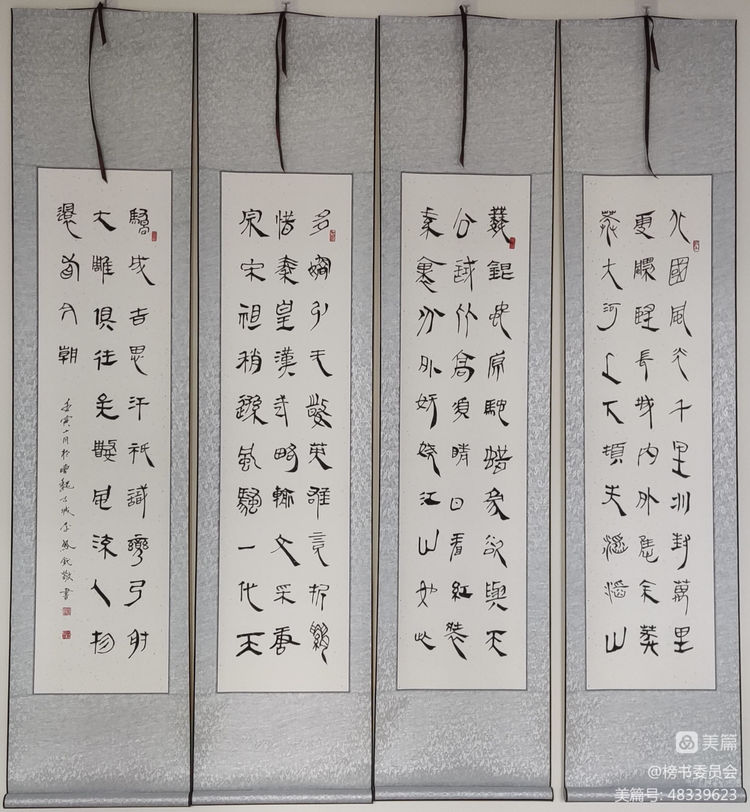 北國風光千里冰封萬里
雪飄望長城内外惟余莽
莽大河上下頓失滔滔山
舞銀蛇原馳蜡象欲與天
公試比高須晴日看紅裝
素裹分外妖嬈江山如此
多嬌引无數英雄競折腰
惜秦皇漢武略輸文采唐
宗宋祖稍遜風騷一代天
驕成吉思汗衹識彎弓射
大雕俱往矣數風流人物
還看今朝
壬寅二月於古城敬書
美篇
@榜书委员会
美篇号: 48339623